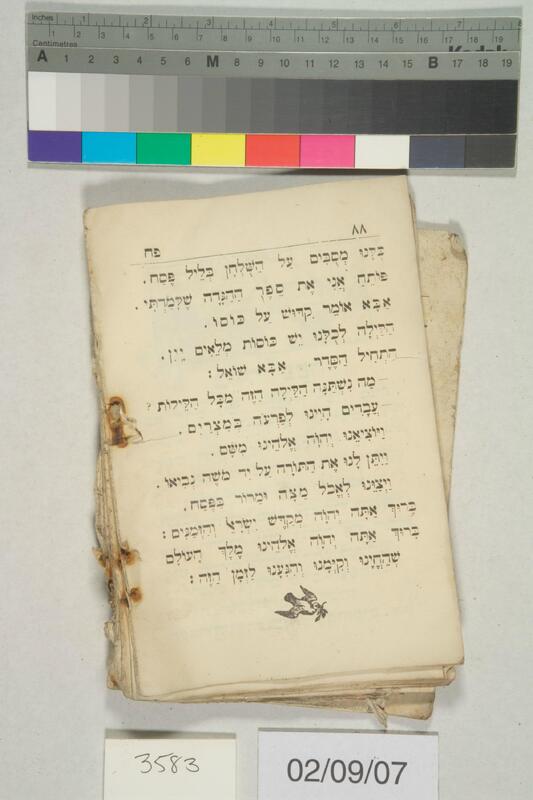 Inches 1 2 3 4 5 6 7 8
Centimetres 1 2 3 4 5 6 7 8 9 10 11 12 13 14 15 16 17 18 19
Kodak
A 1 2 3 4 5 6 M 8 9 10 11 12 13 14 15 B 17 18 19
٨٨ פח
כֻּלָּנוּ מְסֻבִּים עַל הַשֻּׁלְחָן בְּלֵיל פֶּסַח .
פּוֹתֵחַ אֲנִי אֶת סֵפֶר הַהַגָּדָה שֶׁלָּמַדְתִּי .
אַבָּא אוֹמֵר קִדּוּשׁ עַל כּוֹסוֹ .
הַלַּיְלָה לְכֻלָּנוּ יֵשׁ כּוֹסוֹת מְלֵאִים יַיִן .
הִתְחִיל הַסֵּדֶר . אַבָּא שׁוֹאֵל :
מַה נִשְׁתַּנָּה הַלַּיְלָה הַזֶּה מִכָּל הַלֵּילוֹת ?
עֲבָדִים הָיִינוּ לְפַרְעֹה בְּמִצְרַיִם .
וַיּוֹצִיאֵנוּ יְהוָֹה אֱלֹהֵינוּ מִשָּׁם .
וַיִּתֵּן לָנוּ אֶת הַתּוֹרָה עַל יַד מֹשֶׁה נְבִיאוֹ .
וַיְצַוֵּנוּ לֶאֱכֹל מַצָּה וּמָרוֹר בְּפֶּסַח .
בָּרוּךְ אַתָּה יְהוָֹה מְקַדֵּשׁ יִשְׂרָאֵל וְהַזְּמַנִּים :
בָּרוּךְ אַתָּה יְהוָֹה אֱלֹהֵינוּ מֶלֶךְ הָעוֹלָם
שֶׁהֶחֱיָנוּ וְקִיְּמָנוּ וְהִגִּעָנוּ לַזְּמַן הַזֶּה :
3583
02/09/07